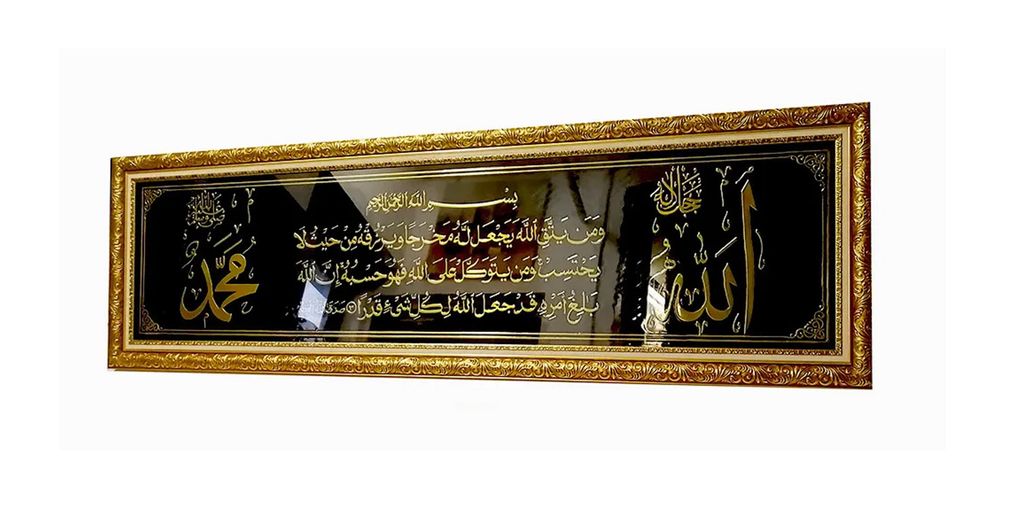 الله
جل جلاله
بسم الله الرحمن الرحيم
وَمَن يَتَّقِ اللَّهَ يَجْعَل لَّهُ مَخْرَجًا وَيَرْزُقْهُ مِنْ حَيْثُ لَا
يَحْتَسِبُ وَمَن يَتَوَكَّلْ عَلَى اللَّهِ فَهُوَ حَسْبُهُ إِنَّ اللَّهَ
بَالِغُ أَمْرِهِ قَدْ جَعَلَ اللَّهُ لِكُلِّ شَيْءٍ قَدْرًا
محمد